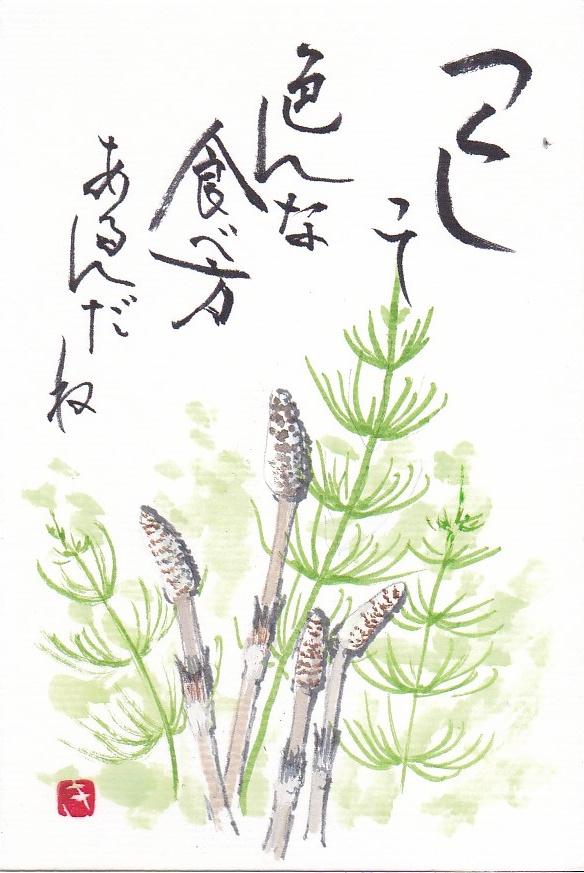 つくし
って
色んな
食べ方
あるんだ
ね
き